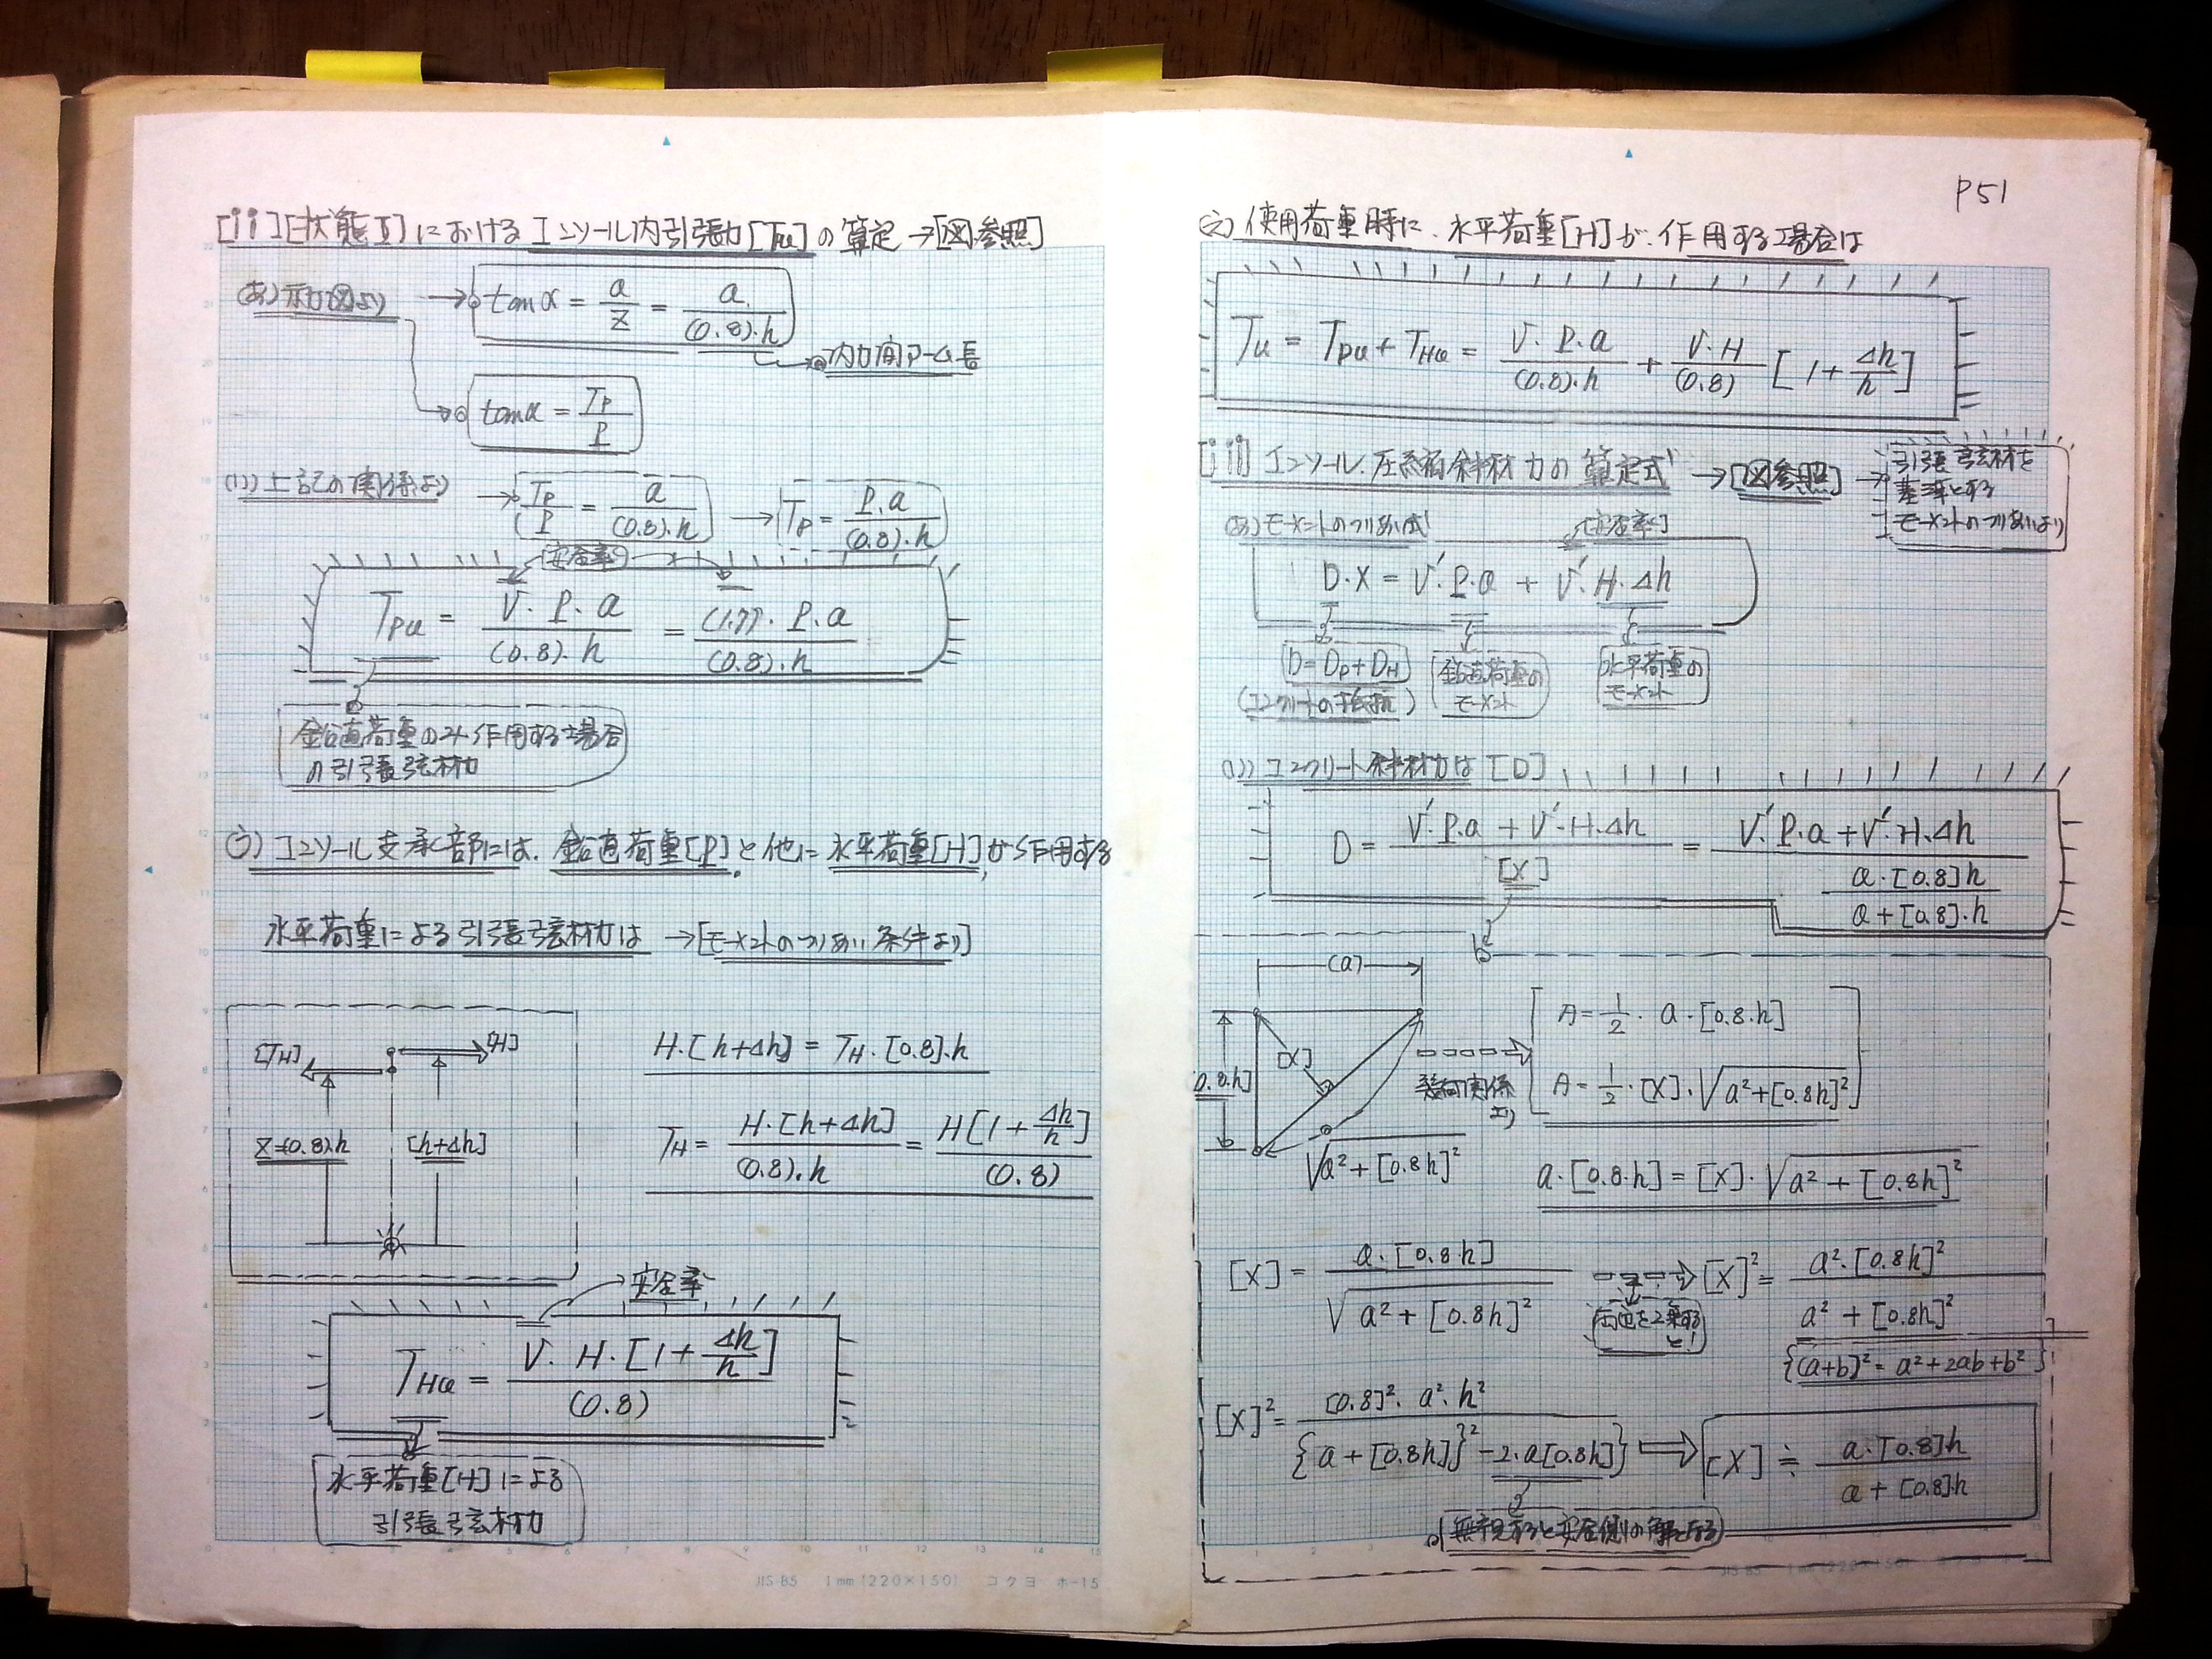 [ii] [状態Ⅱ]における コンソール内引張力[Tu]の算定→[図参照]
(あ)示力図より → tanα = a/z = a/(0.8)·h
内力間アーム長
tanα = Tp/P
(い)上記の関係より → Tp/P = a/(0.8)·h → Tp = P·a/(0.8)·h
(安全率)
Tpu = ν·P·a/(0.8)·h = (1.7)·P·a/(0.8)·h
鉛直荷重のみ作用する場合
の引張弦材力
う)コンソール支承部には、鉛直荷重[P]と他に水平荷重[H]が作用する
水平荷重による引張弦材力は →[モーメントのつりあい条件より]
[TH] [H]
H·[h+Δh] = TH·[0.8]·h
Z=(0.8)h [h+Δh]
TH = H·[h+Δh]/(0.8)·h = H[1+Δh/h]/(0.8)
安全率
THu = ν·H·[1+Δh/h]/(0.8)
水平荷重[H]による
引張弦材力
JIS-B5 1mm(220×150) コクヨ ホ-15
P51
(え)使用荷重時に、水平荷重[H]が、作用する場合は
Tu = Tpu + THu = ν·P·a/(0.8)·h + ν·H/(0.8) [1+Δh/h]
[iii] コンソール圧縮斜材力の算定式 →[図参照]→
引張弦材を
基準とする
モーメントのつりあいより
(あ)モーメントのつりあい式 [安全率]
D·X = ν'·P·a + ν'·H·Δh
D=DP+DH
(コンクリートの抵抗)
鉛直荷重の
モーメント
水平荷重の
モーメント
(い)コンクリート斜材力は [D]
D = ν'·P·a + ν'·H·Δh/[X] = ν'·P·a + ν'·H·Δh/(a·[0.8]h/a+[0.8]·h)
(a)
[X]
0.8·h]
√a²+[0.8h]²
幾何関係
より
A=1/2·a·[0.8·h]
A=1/2·[X]·√a²+[0.8h]²
a·[0.8·h] = [X]·√a²+[0.8h]²
[X] = a·[0.8·h]/√a²+[0.8h]²
両辺を2乗する
と!
[X]² = a²·[0.8h]²/a²+[0.8h]²
{(a+b)² = a²+2ab+b²}
[X]² = [0.8]²·a²·h²/{a+[0.8h]}²-2·a[0.8h]} ⇒ [X] ≒ a·[0.8]h/a+[0.8]·h
(無視すると安全側の解となる)